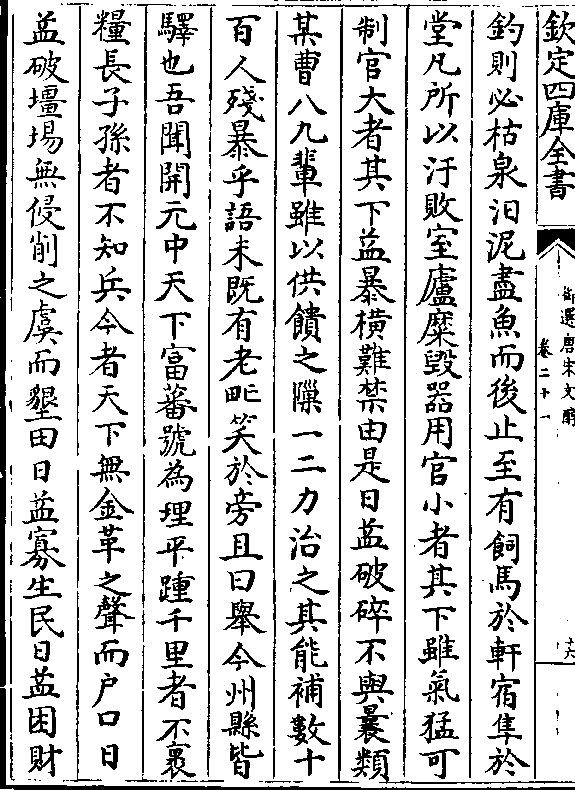 欽定四庫全書
御選唐宋文醇
卷二十一
六
釣則必枯泉汩泥盡魚而後止至有飼馬於軒宿隼於
堂凡所以汙敗室廬糜毀器用官小者其下雖氣猛可
制官大者其下益暴橫難禁由是日益破碎不與曩類
某曹八九輩雖以供饋之隟一二力治之其能補數十
百人殘暴乎語未既有老甿笑於旁且曰舉今州縣皆
驛也吾聞開元中天下富蕃號為理平踵千里者不裹
糧長子孫者不知兵今者天下無金革之聲而戶口日
益破壃場無侵削之虞而墾田日益寡生民日益困財